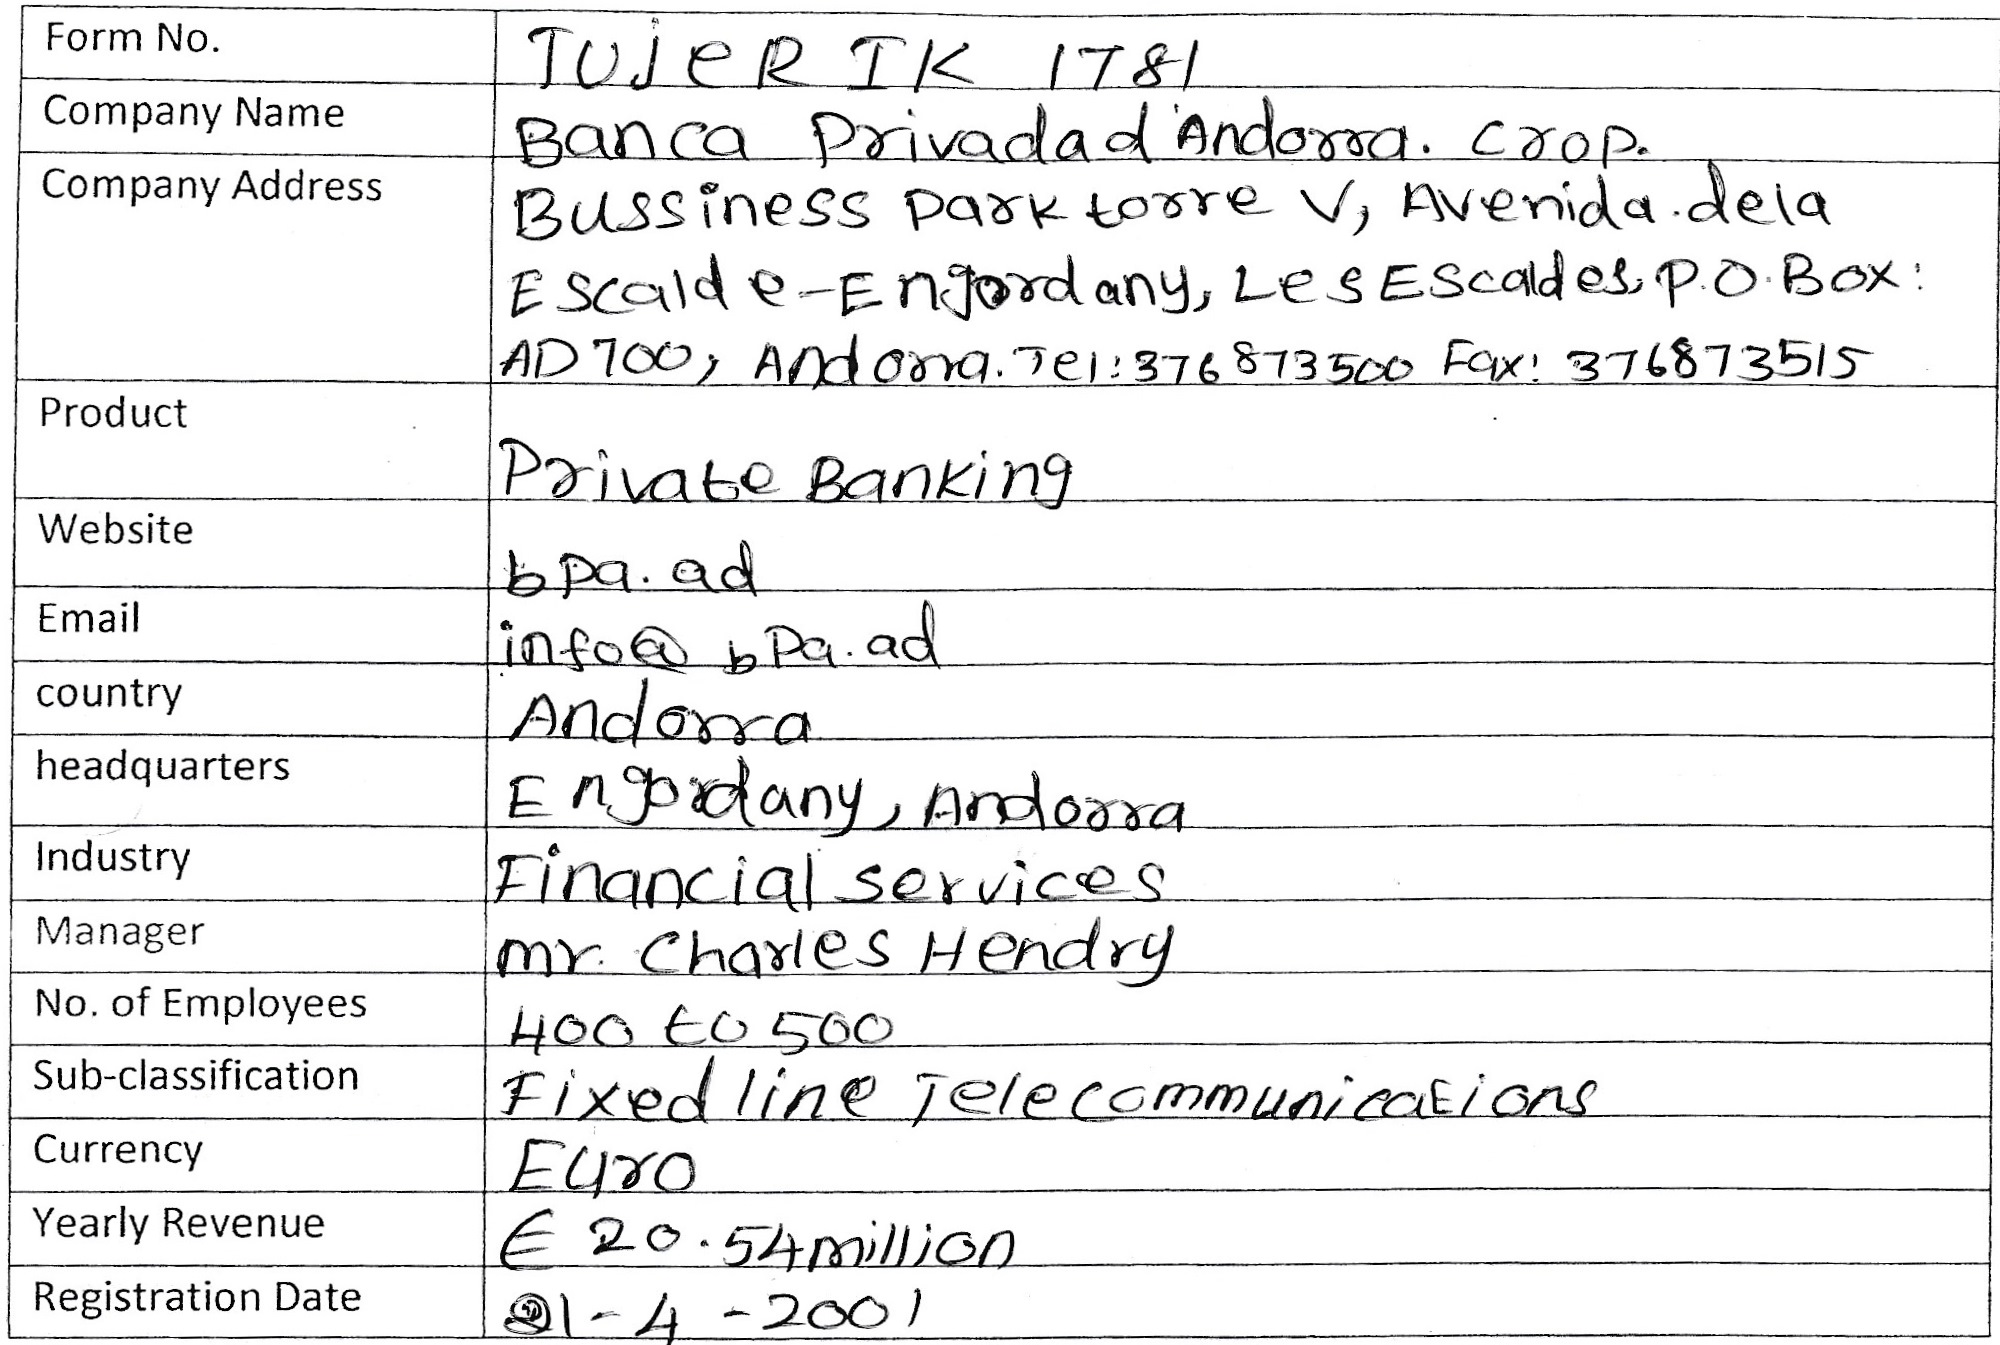 Form No. TUJER IK 1781
Company Name Banca Privadad'Andorra. Crop.
Company Address Bussiness Park torre V, Avenida.dela
Escalde-Engordany, Les Escaldes, P.O.Box:
AD700, Andorra. Tel:376873500 Fax: 376873515
Product
Private Banking
Website
bpa.ad
Email info@bpa.ad
country Andorra
headquarters Engordany, Andorra
Industry Financial services
Manager mr. Charles Hendry
No. of Employees 400 to 500
Sub-classification Fixed line Telecommunications
Currency Euro
Yearly Revenue € 20.54million
Registration Date 21-4-2001